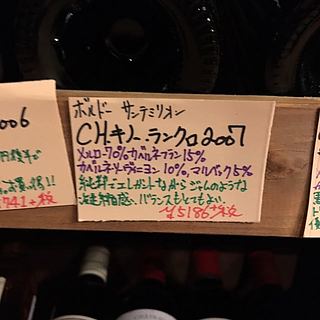 ボルドー サンテミリオン
CH.キノー.ランクロ2007
メルロー70%カベルネフラン15%
カベルネソーヴィニヨン 10%,マルベック5%
純粋でエレガントながらジャムのような
凝縮感、バランスもとてもよい。
¥5186+税
006
お買い得!!
741+税